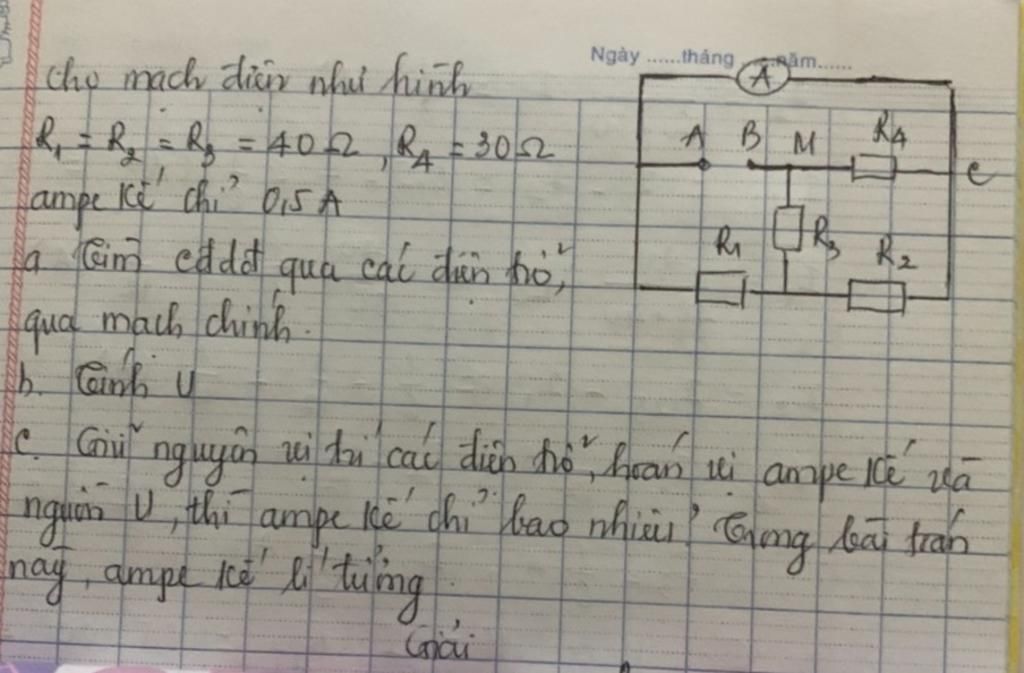 Ngày ......tháng ......năm......
Cho mạch điện như hình
R₁ = R₂ = R₃ = 40Ω, R₄ = 30Ω
ampe kế chỉ 0,5 A
a. Tìm cđdđ qua các điện trở,
qua mạch chính.
b. Tính U
c. Giữ nguyên vị trí các điện trở, hoán vị ampe kế và
nguồn U, thì ampe kế chỉ bao nhiêu? Trong bài toán
này, ampe kế lí tưởng.
Giải
A
A B M R₄
C
R₁ R₃ R₂